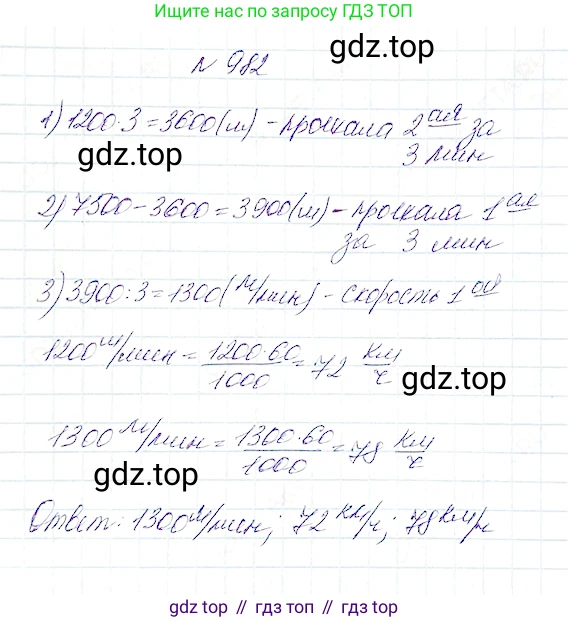 Ищите нас по запросу ГДЗ ТОП
№ 982
gdz.top
1) 1200·3=3600(м) - проехала 2 ая за
3 мин
gdz.top
2) 7500-3600=3900(м) - проехала 1 ая
за 3 мин
3) 3900:3=1300(м/мин) - скорость 1 ой
1200 м/мин = 1200·60/1000 = 72 км/ч
gdz.top
1300 м/мин = 1300·60/1000 = 78 км/ч
gdz.top
Ответ: 1300 м/мин; 72 км/ч; 78 км/ч
gdz.top // гдз.top // гдз.топ